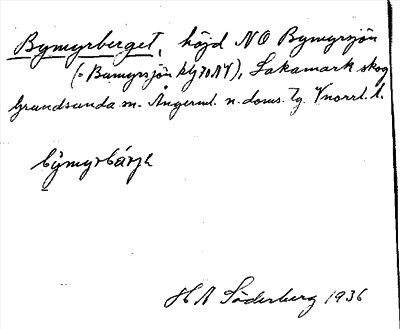 Bymyrberget, höjd NO Bymyrsjön
(= Bamyrsjön blg 70 NV), Lakamark skog
Grundsunda sn. Ångerml. n. doms. Tg. Vnorrl. l.
bỳmyrbárje
H A Söderberg 1936